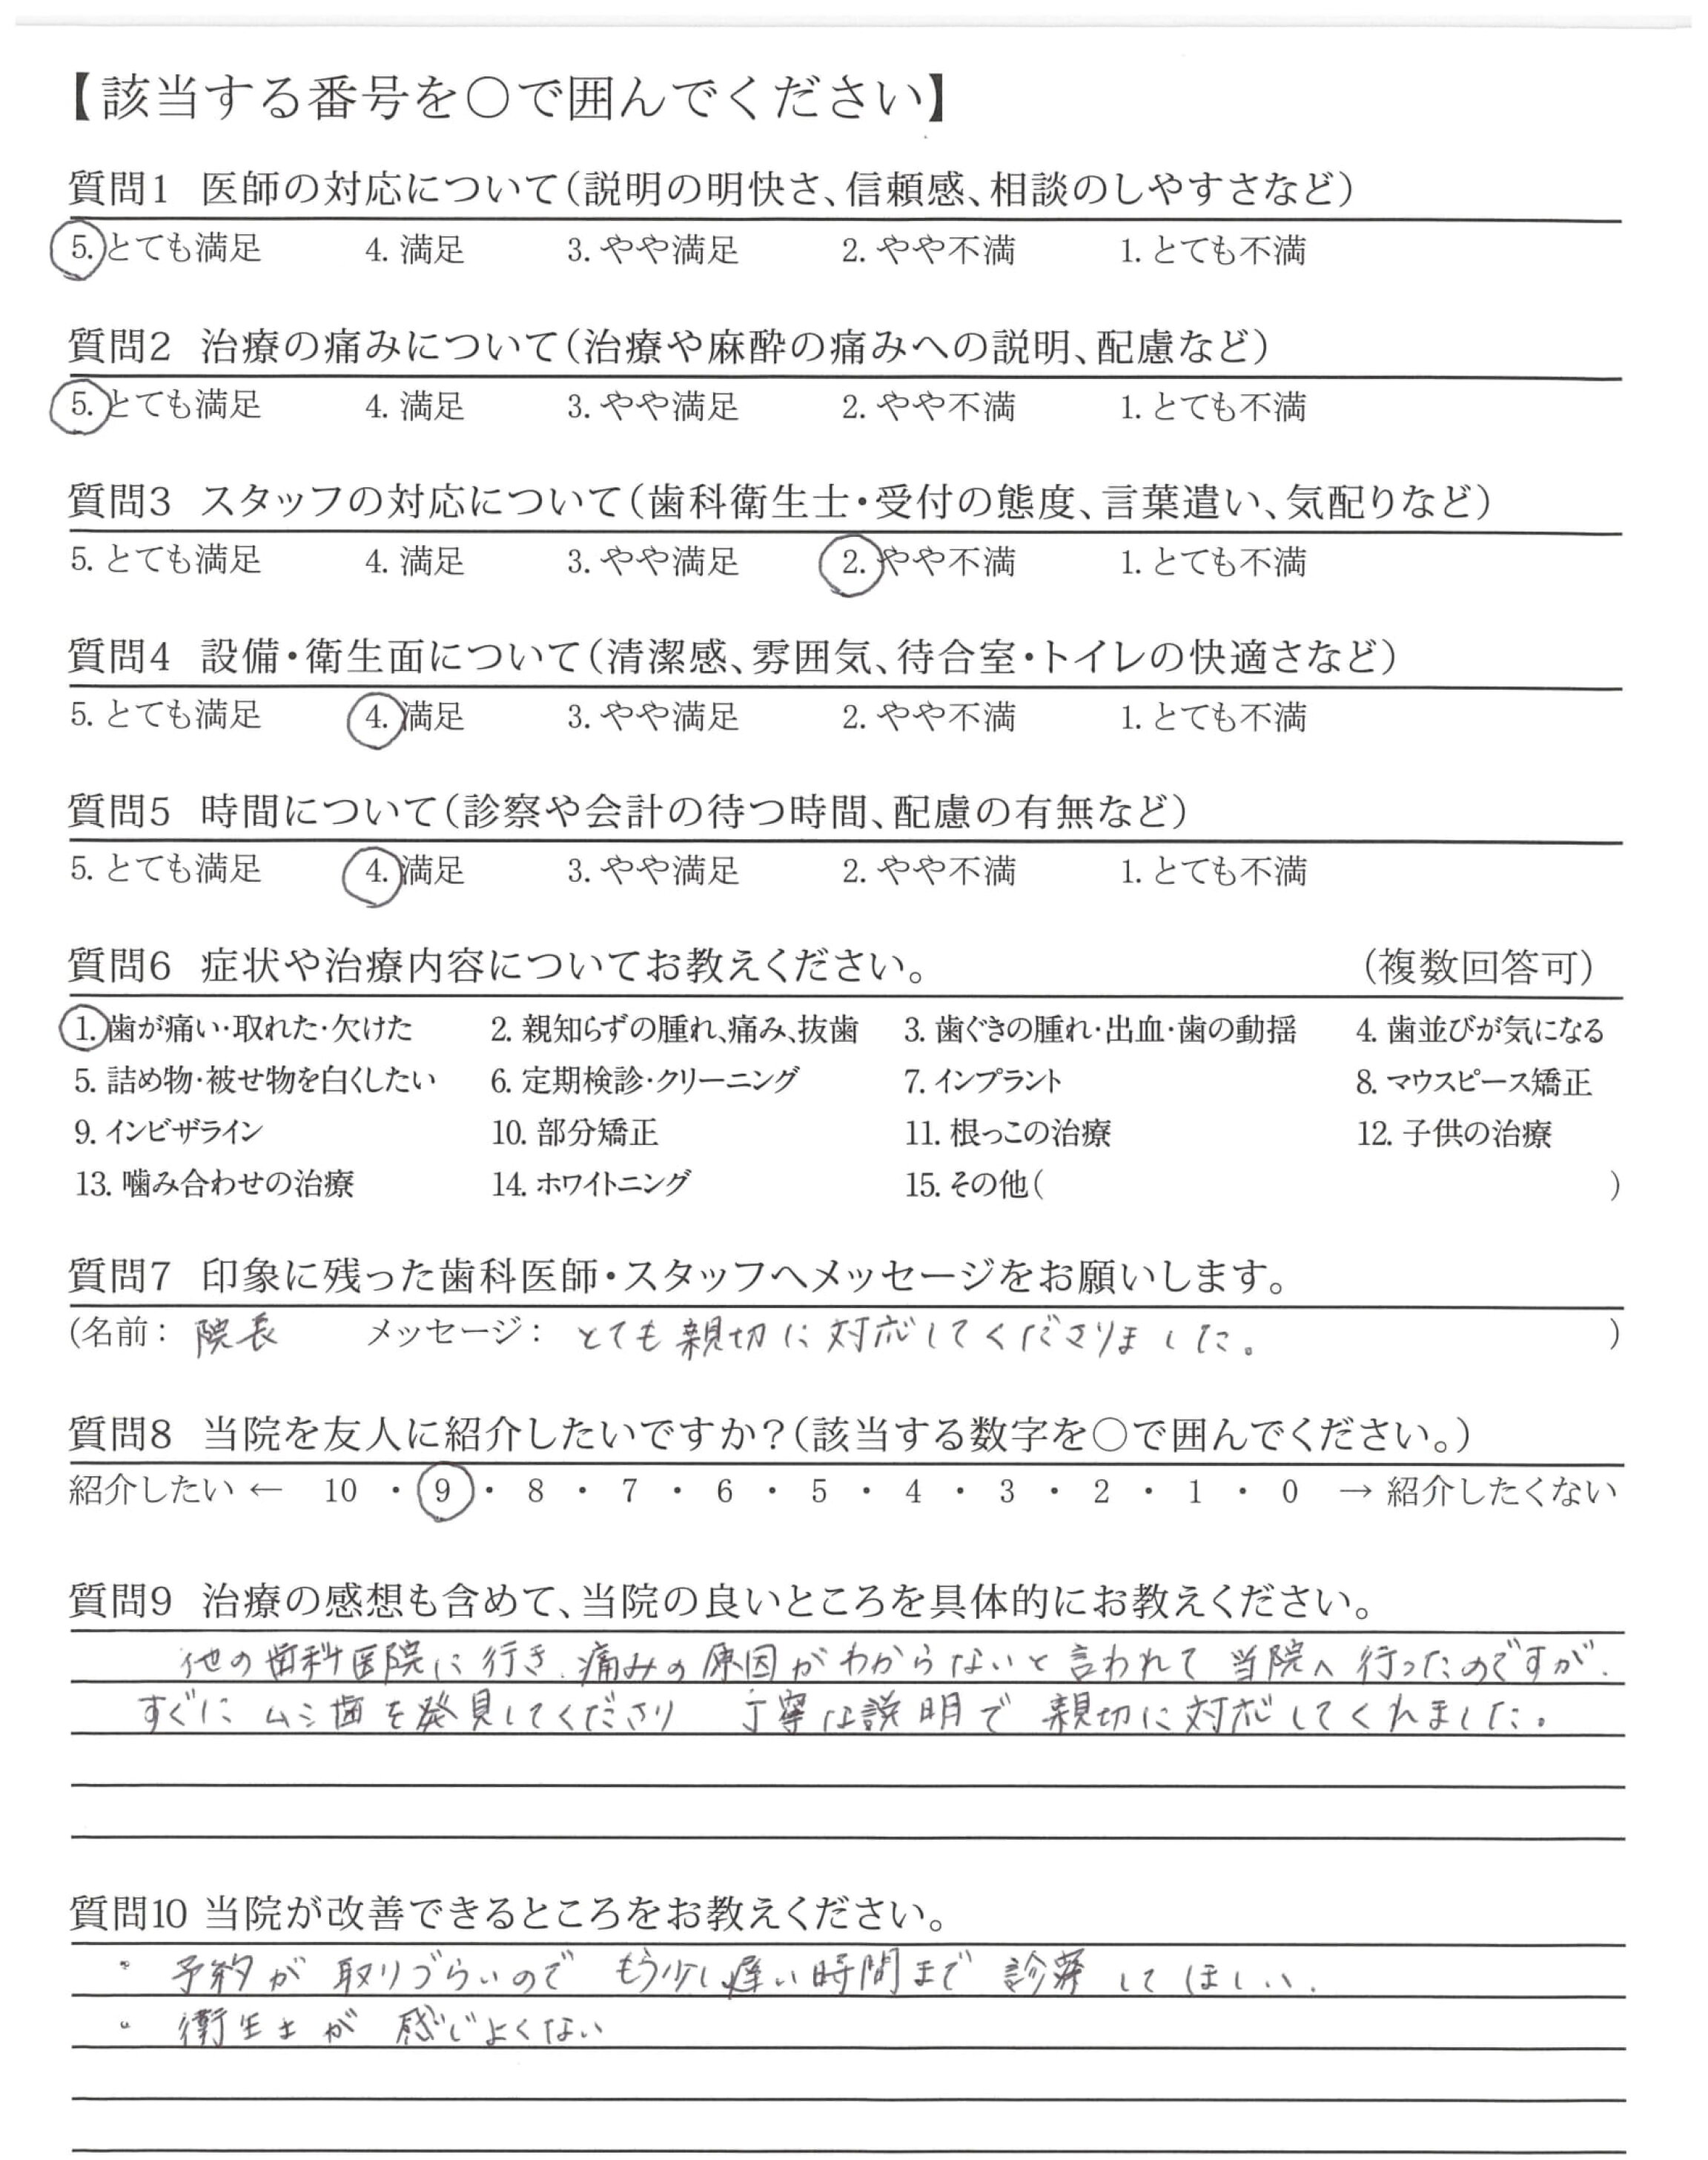 【該当する番号を○で囲んでください】
質問1 医師の対応について(説明の明快さ、信頼感、相談のしやすさなど)
5. とても満足 4. 満足 3. やや満足 2. やや不満 1. とても不満
質問2 治療の痛みについて(治療や麻酔の痛みへの説明、配慮など)
5. とても満足 4. 満足 3. やや満足 2. やや不満 1. とても不満
質問3 スタッフの対応について(歯科衛生士・受付の態度、言葉遣い、気配りなど)
5. とても満足 4. 満足 3. やや満足 2. やや不満 1. とても不満
質問4 設備・衛生面について(清潔感、雰囲気、待合室・トイレの快適さなど)
5. とても満足 4. 満足 3. やや満足 2. やや不満 1. とても不満
質問5 時間について(診察や会計の待つ時間、配慮の有無など)
5. とても満足 4. 満足 3. やや満足 2. やや不満 1. とても不満
質問6 症状や治療内容についてお教えください。 (複数回答可)
1. 歯が痛い・取れた・欠けた 2. 親知らずの腫れ、痛み、抜歯 3. 歯ぐきの腫れ・出血・歯の動揺 4. 歯並びが気になる
5. 詰め物・被せ物を白くしたい 6. 定期検診・クリーニング 7. インプラント 8. マウスピース矯正
9. インビザライン 10. 部分矯正 11. 根っこの治療 12. 子供の治療
13. 噛み合わせの治療 14. ホワイトニング 15. その他( )
質問7 印象に残った歯科医師・スタッフへメッセージをお願いします。
(名前: 院長 メッセージ: とても親切に対応してくださりました。 )
質問8 当院を友人に紹介したいですか?(該当する数字を○で囲んでください。)
紹介したい ← 10 ・ 9 ・ 8 ・ 7 ・ 6 ・ 5 ・ 4 ・ 3 ・ 2 ・ 1 ・ 0 → 紹介したくない
質問9 治療の感想も含めて、当院の良いところを具体的にお教えください。
他の歯科医院に行き、痛みの原因がわからないと言われて 当院へ行ったのですが、
すぐに ムシ歯を発見してくださり 丁寧な説明で 親切に対応してくれました。
質問10 当院が改善できるところをお教えください。
・ 予約が 取りづらいので もう少し遅い時間まで 診療 してほしい。
・ 衛生士が 感じよくない